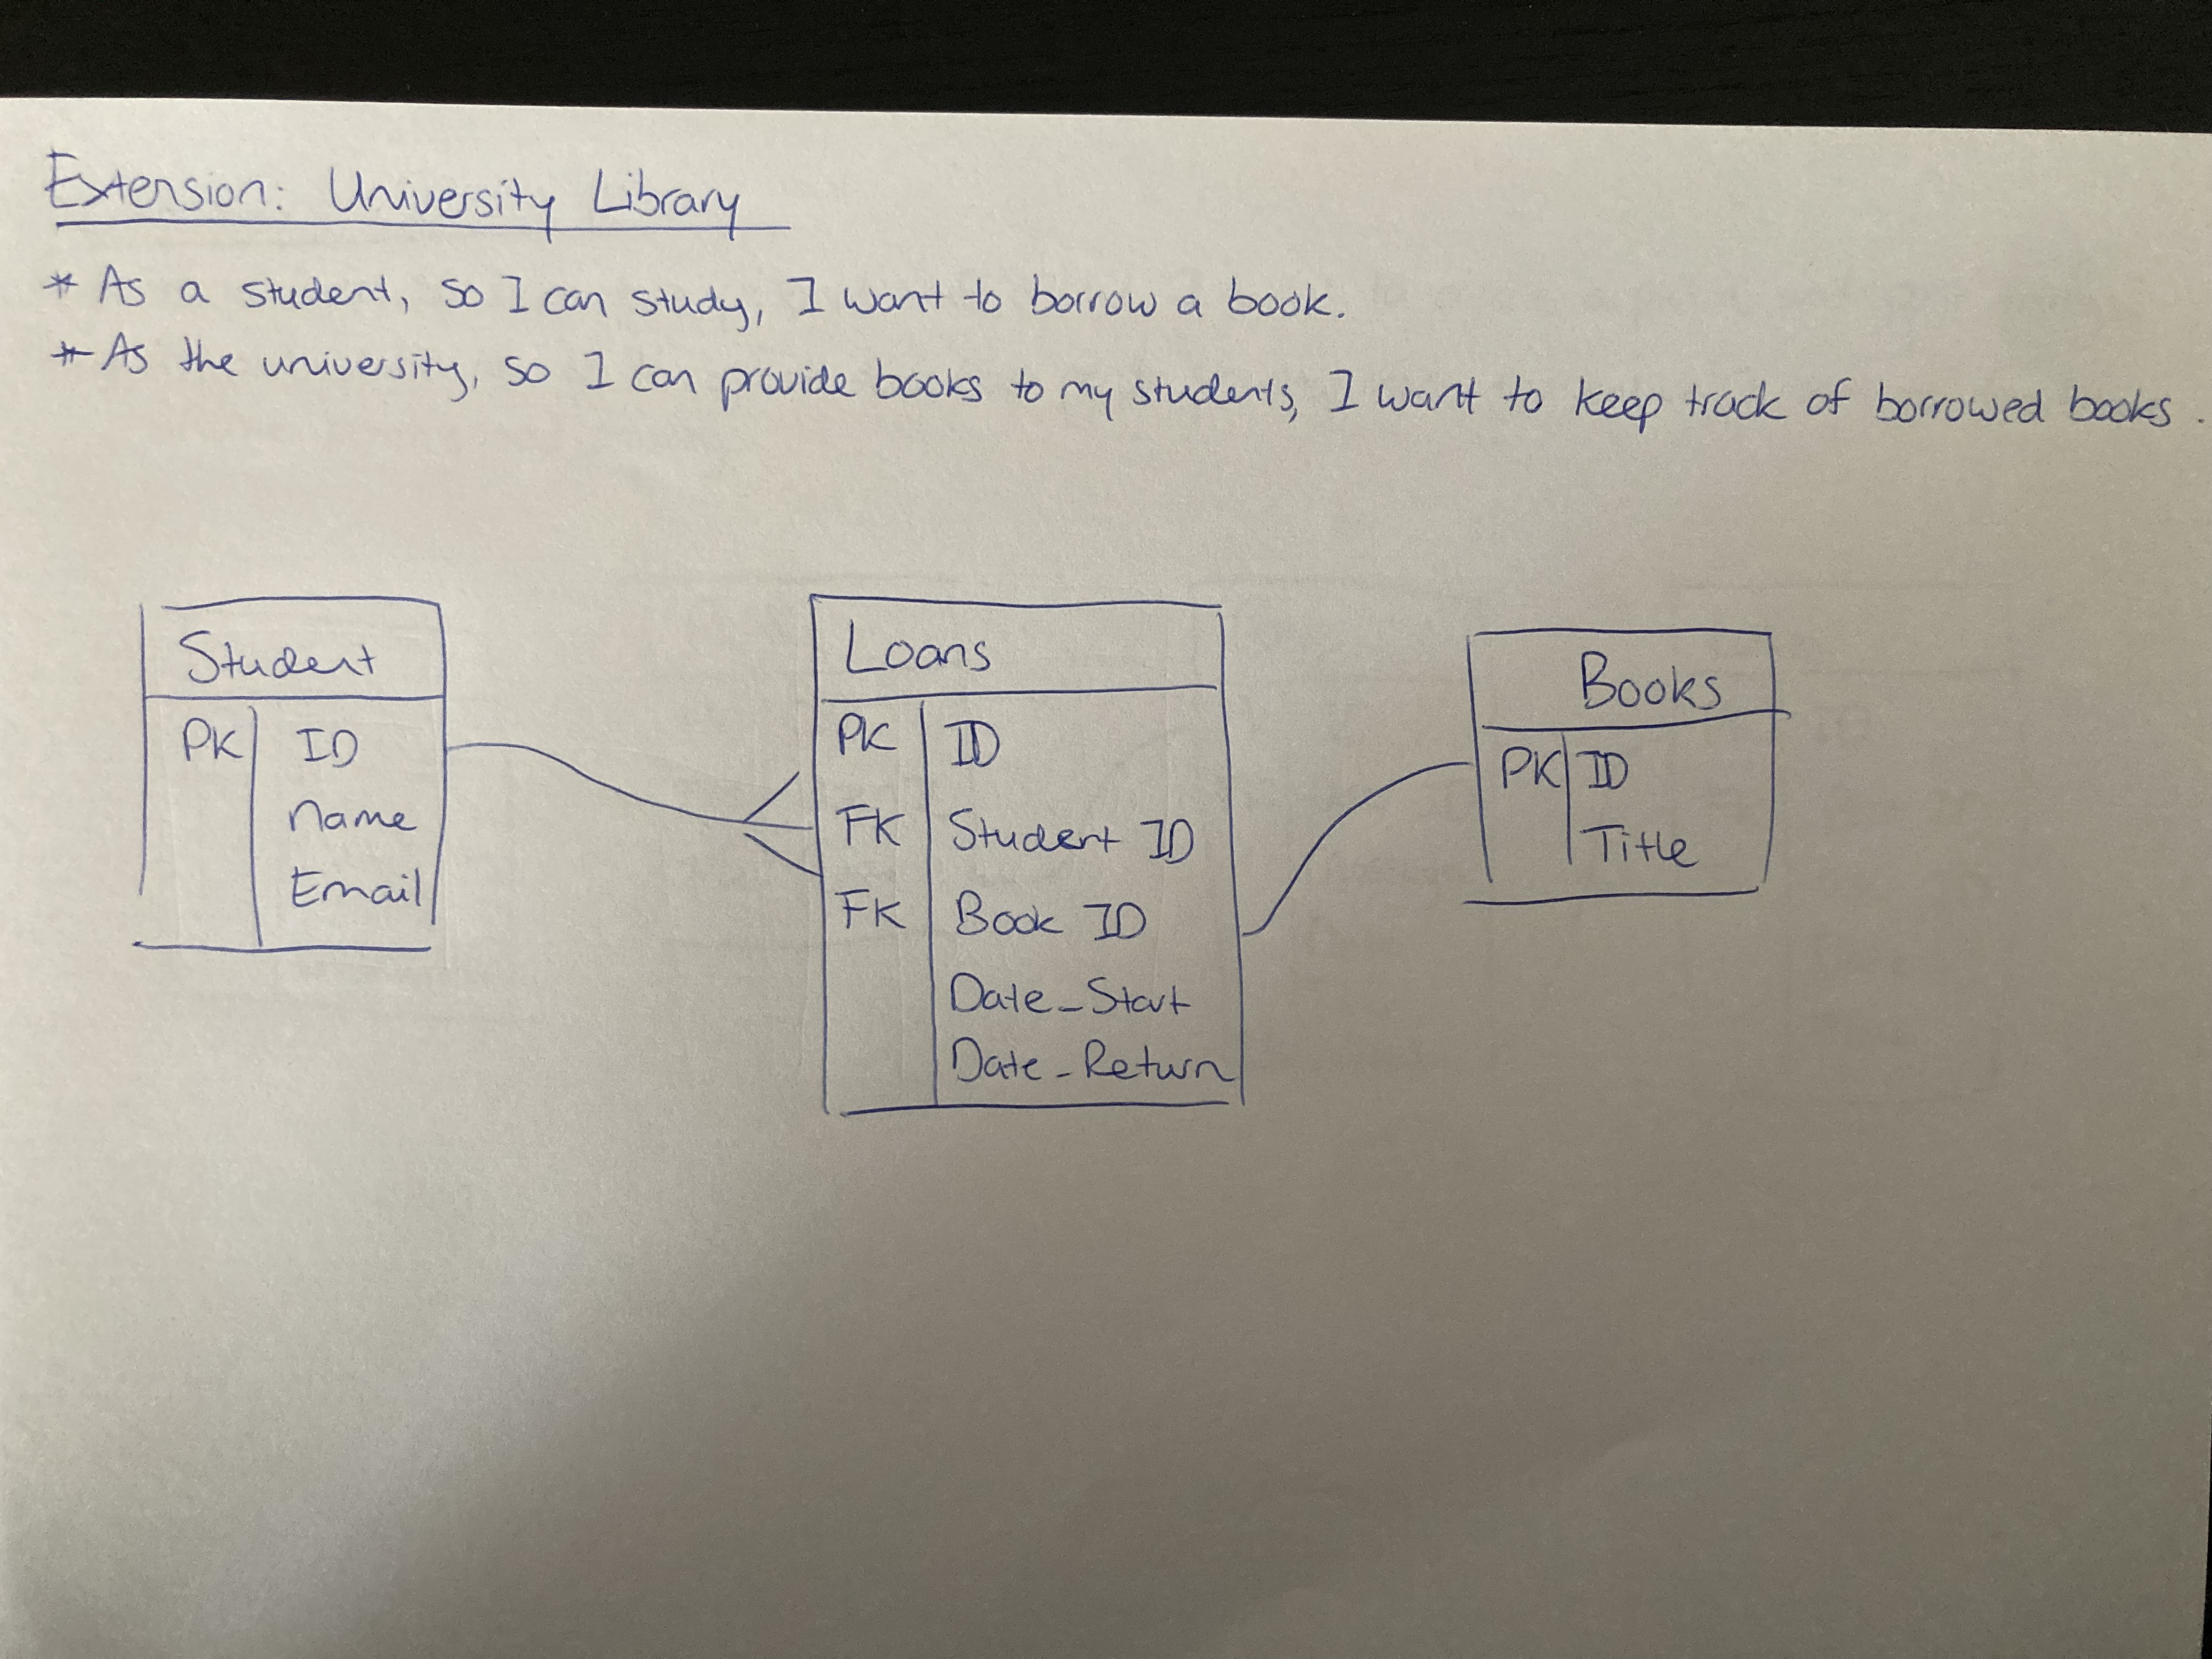 Extension: University Library
* As a student, so I can study, I want to borrow a book.
* As the university, so I can provide books to my students, I want to keep track of borrowed books.
Student
PK ID
Name
Email
Loans
PK ID
FK Student ID
FK Book ID
Date_Start
Date_Return
Books
PK ID
Title